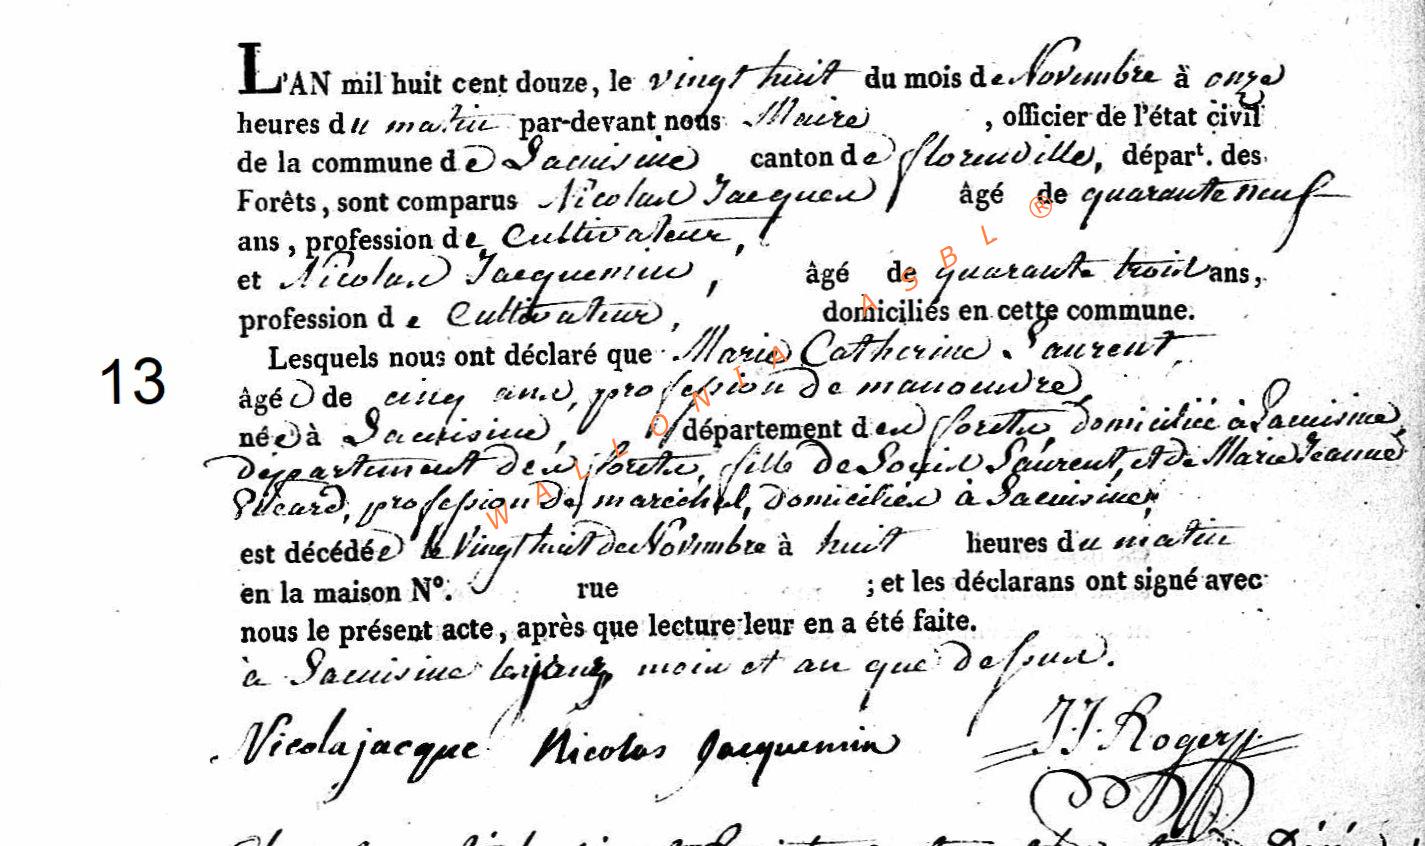 L'AN mil huit cent douze, le vingt huit du mois de Novembre à onze
heures du matin par-devant nous Maire , officier de l'état civil
de la commune de Lacuisine canton de florenville, dépar^t. des
Forêts, sont comparus Nicolas Jacques âgé de quarante neuf
ans, profession de Cultivateur,
et Nicolas Jacquemin, âgé de quarante trois ans,
profession de Cultivateur, domiciliés en cette commune.
Lesquels nous ont déclaré que Marie Catherine Laurent
13
âgée de cinq ans, profession de manouvre,
née à Lacuisine, département des forêts, domiciliée à Lacuisine,
departement des forêts, fille de Louis Laurent, et de Marie Jeanne
profession de marechal, domiciliés à Lacuisine,
est décédée le Vingt huit du Novembre à huit heures du matin
en la maison N°. rue ; et les déclarans ont signé avec
nous le présent acte, après que lecture leur en a été faite.
à Lacuisine les jour, mois et an que dessus.
Nicola jacque Nicolas Jacquemin J J Rogery
WALLONIA ASBL ®